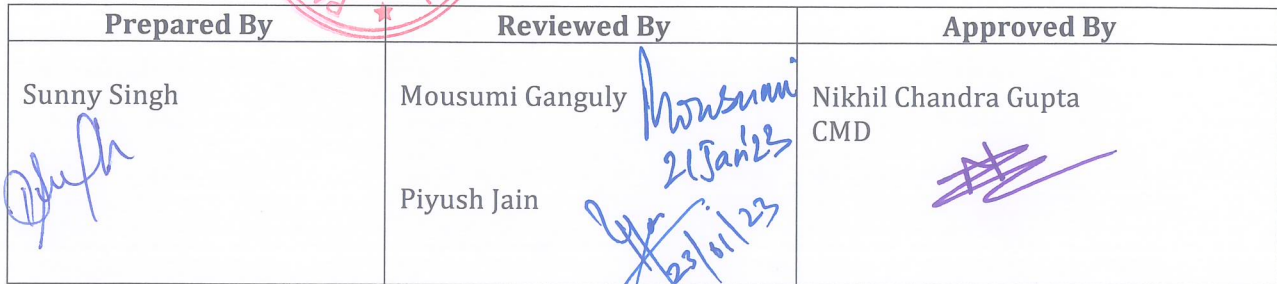 Prepared By
Reviewed By
Approved By
Sunny Singh
Mousumi Ganguly
Mousumi
21Jan'23
Piyush Jain
23/01/23
Nikhil Chandra Gupta
CMD